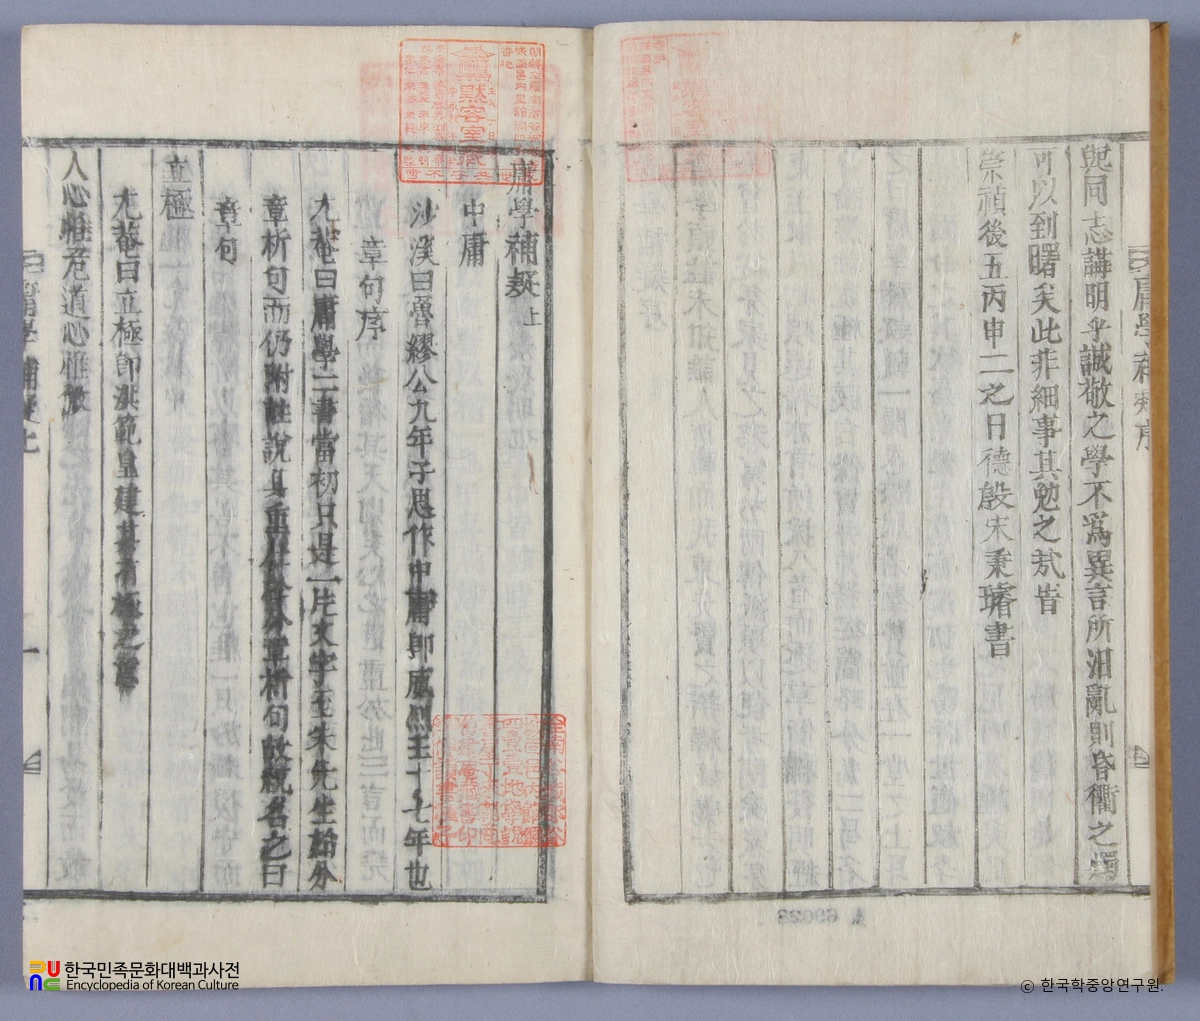 與同志講明乎誠敬之學不爲異言所汨亂則昏衢之燭
可以到曙矣此非細事其勉之㢤旹
崇禎後五丙申二之日德殷宋秉璿書
庸學補疑序
庸學補疑上
中庸
沙溪曰魯繆公九年子思作中庸卽威烈王十七年也
章句序
尤菴曰庸學二書當初只是一片文字至朱先生始分
章析句而仍附註說具重在於分章析句故統名之曰
章句
立極
尤菴曰立極卽洪範皇建其有極之意
人心惟危道心惟微
庸學補疑上
一
默容室藏
69028
한국민족문화대백과사전
Encyclopedia of Korean Culture
© 한국학중앙연구원.